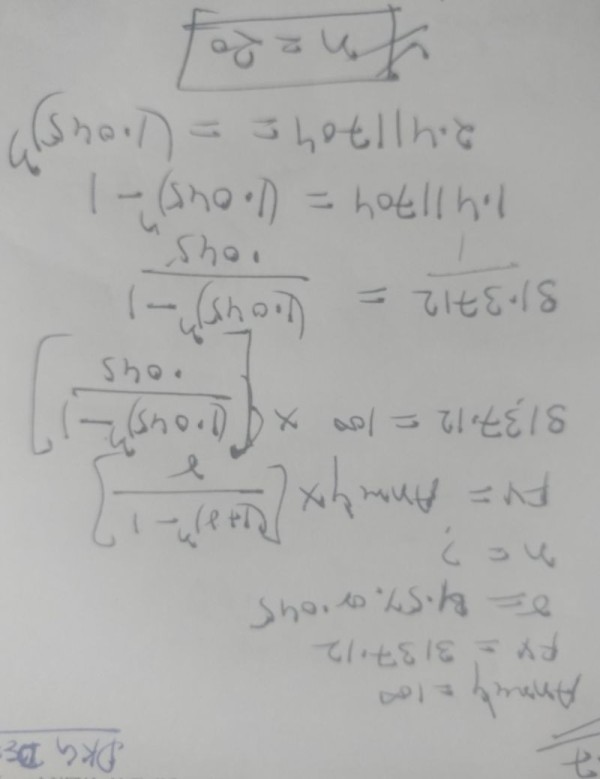 DKG DE
7
Annuity = 100
FV = 3137.12
r = 4.5% or .045
n = ?
FV = Annuity × [(1+r)^n − 1 / r]
3137.12 = 100 × [(1.045)^n − 1 / .045]
31.3712 / 1 = (1.045)^n − 1 / .045
1.411704 = (1.045)^n − 1
2.411704 = = (1.045)^n
n = 20